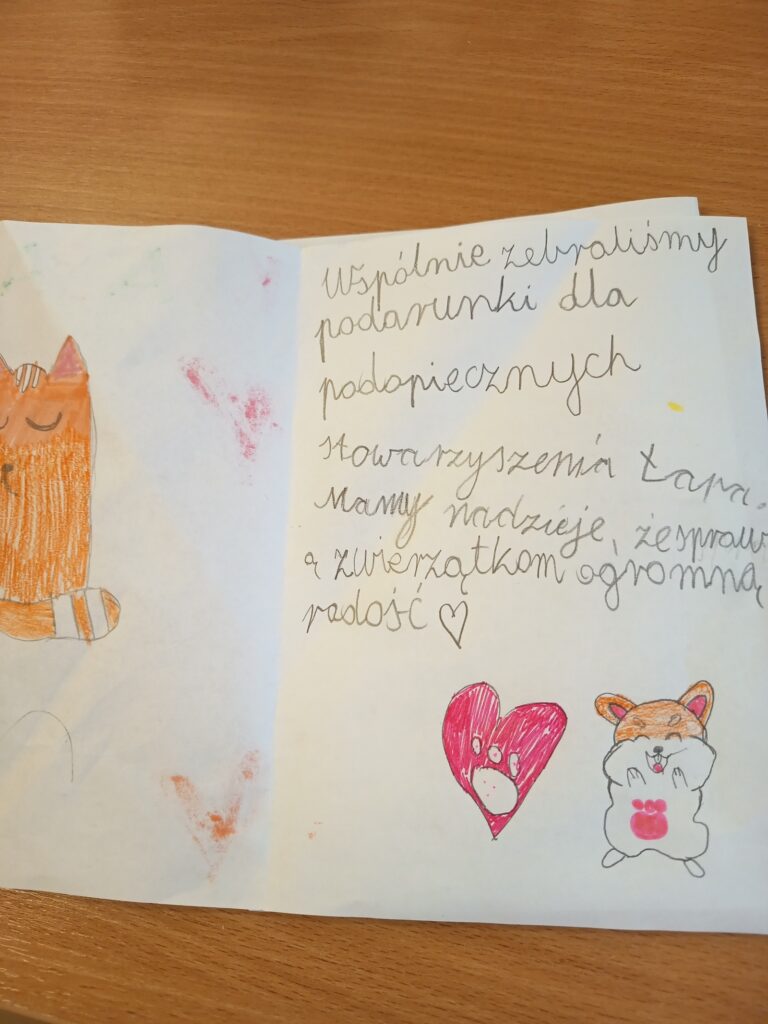 Wspólnie zebraliśmy
podarunki dla
podopiecznych
stowarzyszenia Łapa.
Mamy nadzieję, żespraw
ą zwierzątkom ogromną
radość ♡